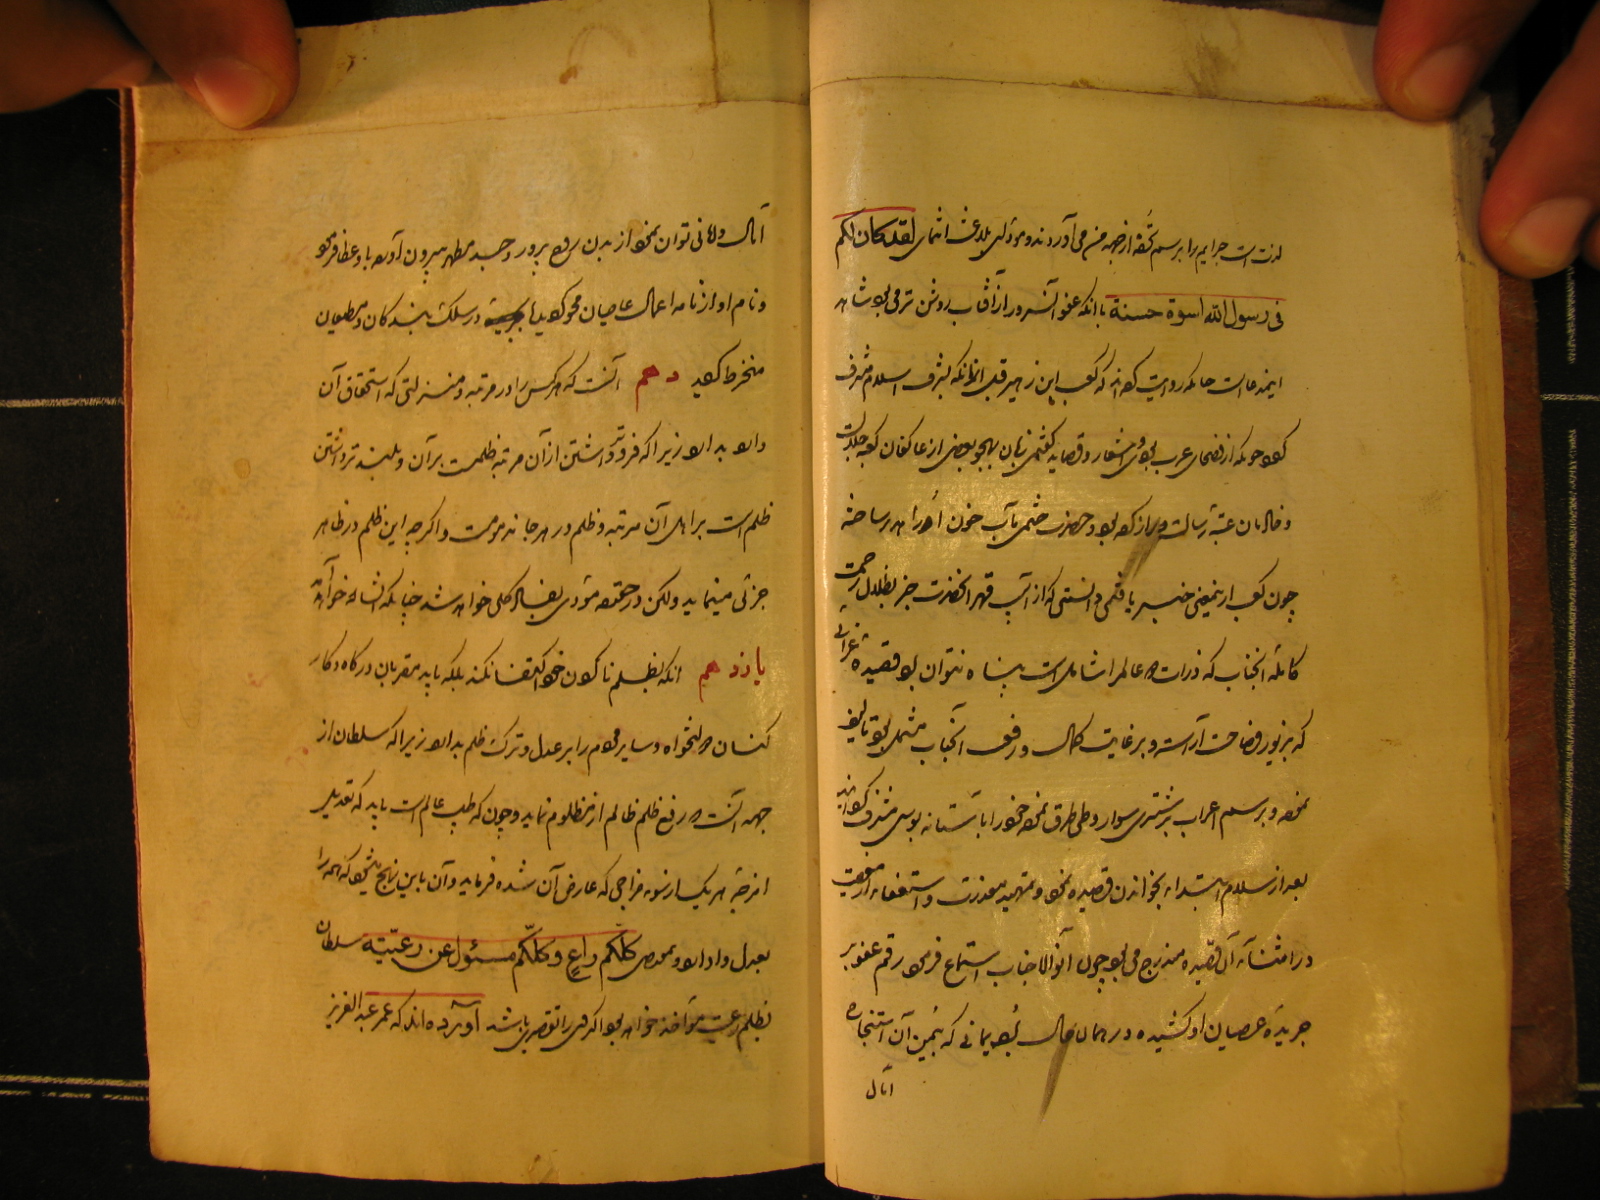 لذت است جرایم را برسم تحفه از جهه من می آوردند و مودای بلاغت انتمای لقد کان لکم
فی رسول الله اسوة حسنة با آنکه عفو آنسرور از آفتاب روشن تر می بود شاهد
اینمدعاست چنانکه روایت کرده اند که کعب ابن زهیر قبل از آنکه بشرف اسلام مشرف
کرد چونکه از فصحای عرب بود و اشعار و قصاید گفتی زبان بهجو بعضی از عاکفان کعبه جلالت
و خادمان عتبهٔ رسالت دراز کرده بود و حضرت ختمی مآب خون او را هدر ساخته
چون کعب از معنی خبر یافت می دانستی که از آسیب قهر آنحضرت جز بظلال رحمت
کاملهٔ آنجناب که ذرات عالم را شامل است پناه نتوان بود قصیدهٔ غرائی
که بزیور فصاحت آراسته و بر غایت کمال و رافت آنجناب مشتمل بود تالیف
نموده و برسم اعراب بر شتری سوار و طی طرق نموده خود را بآستانه بوسی مشرف گردانید
بعد از سلام ابتدا بخواندن قصیده نمود و تمهید معذرت و استعفا از معصیت
در اثنای آن قصیده مندرج می بود چون آنوالاجناب استماع فرمود رقم عفو بر
جریدهٔ عصیان او کشیده در همان حال بُرد یمانی که بیُمن آن استنجاح
آمال
آمال و امانی توان نمود از بدن روح پرور و جسد مطهر بیرون آورده باو عطا فرمود
و نام او از نامهٔ اعمال عاصیان محو گردید در سلک بندگان و مطیعان
منخرط گردید دهم آنست که هر کس را در مرتبه و منزلتی که استحقاق آن
دارد بدارد زیرا که فروتر داشتن از آن مرتبه ظلمست بر آن و بلندتر داشتن
ظلم است بر اهل آن مرتبه و ظلم در هر جا مذمومست و اگر چه این ظلم در ظاهر
جزئی مینماید ولکن در حقیقه مودی بفساد کلی خواهد شد چنانکه انشاء الله خواهد آمد
یازدهم آنکه بظلم ناکردن خود اکتفا نکند بلکه باید مقربان درگاه و کار
کنان دولتخواه و سایر مردم را بر عدل و ترک ظلم بدارد زیرا که سلطان از
جهه آنست که رفع ظلم ظالم از مظلوم نماید و چون که طبیب عالم است باید که تعدیل
امزجهٔ هر یک از سوء مزاجی که عارض آن شده فرماید و آن باین نهج میشود که همه را
بعدل وادارد و بمقتضی کلّکم راعٍ و کلّکم مسئول عن رعیّته سلطان
بظلم رعیت مؤاخذ خواهد بود اگر وی را تقصیری باشد آورده اند که عمر عبد العزیز